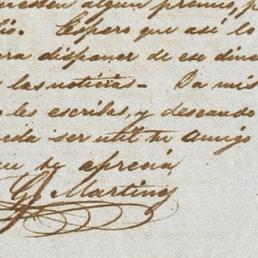 algun premio, p
Espero que asi lo
ra disponer de ese dine
las noticias - Da mis
les escribas, y deseando
eda ser util tu amigo
que te aprecia
G Martinez